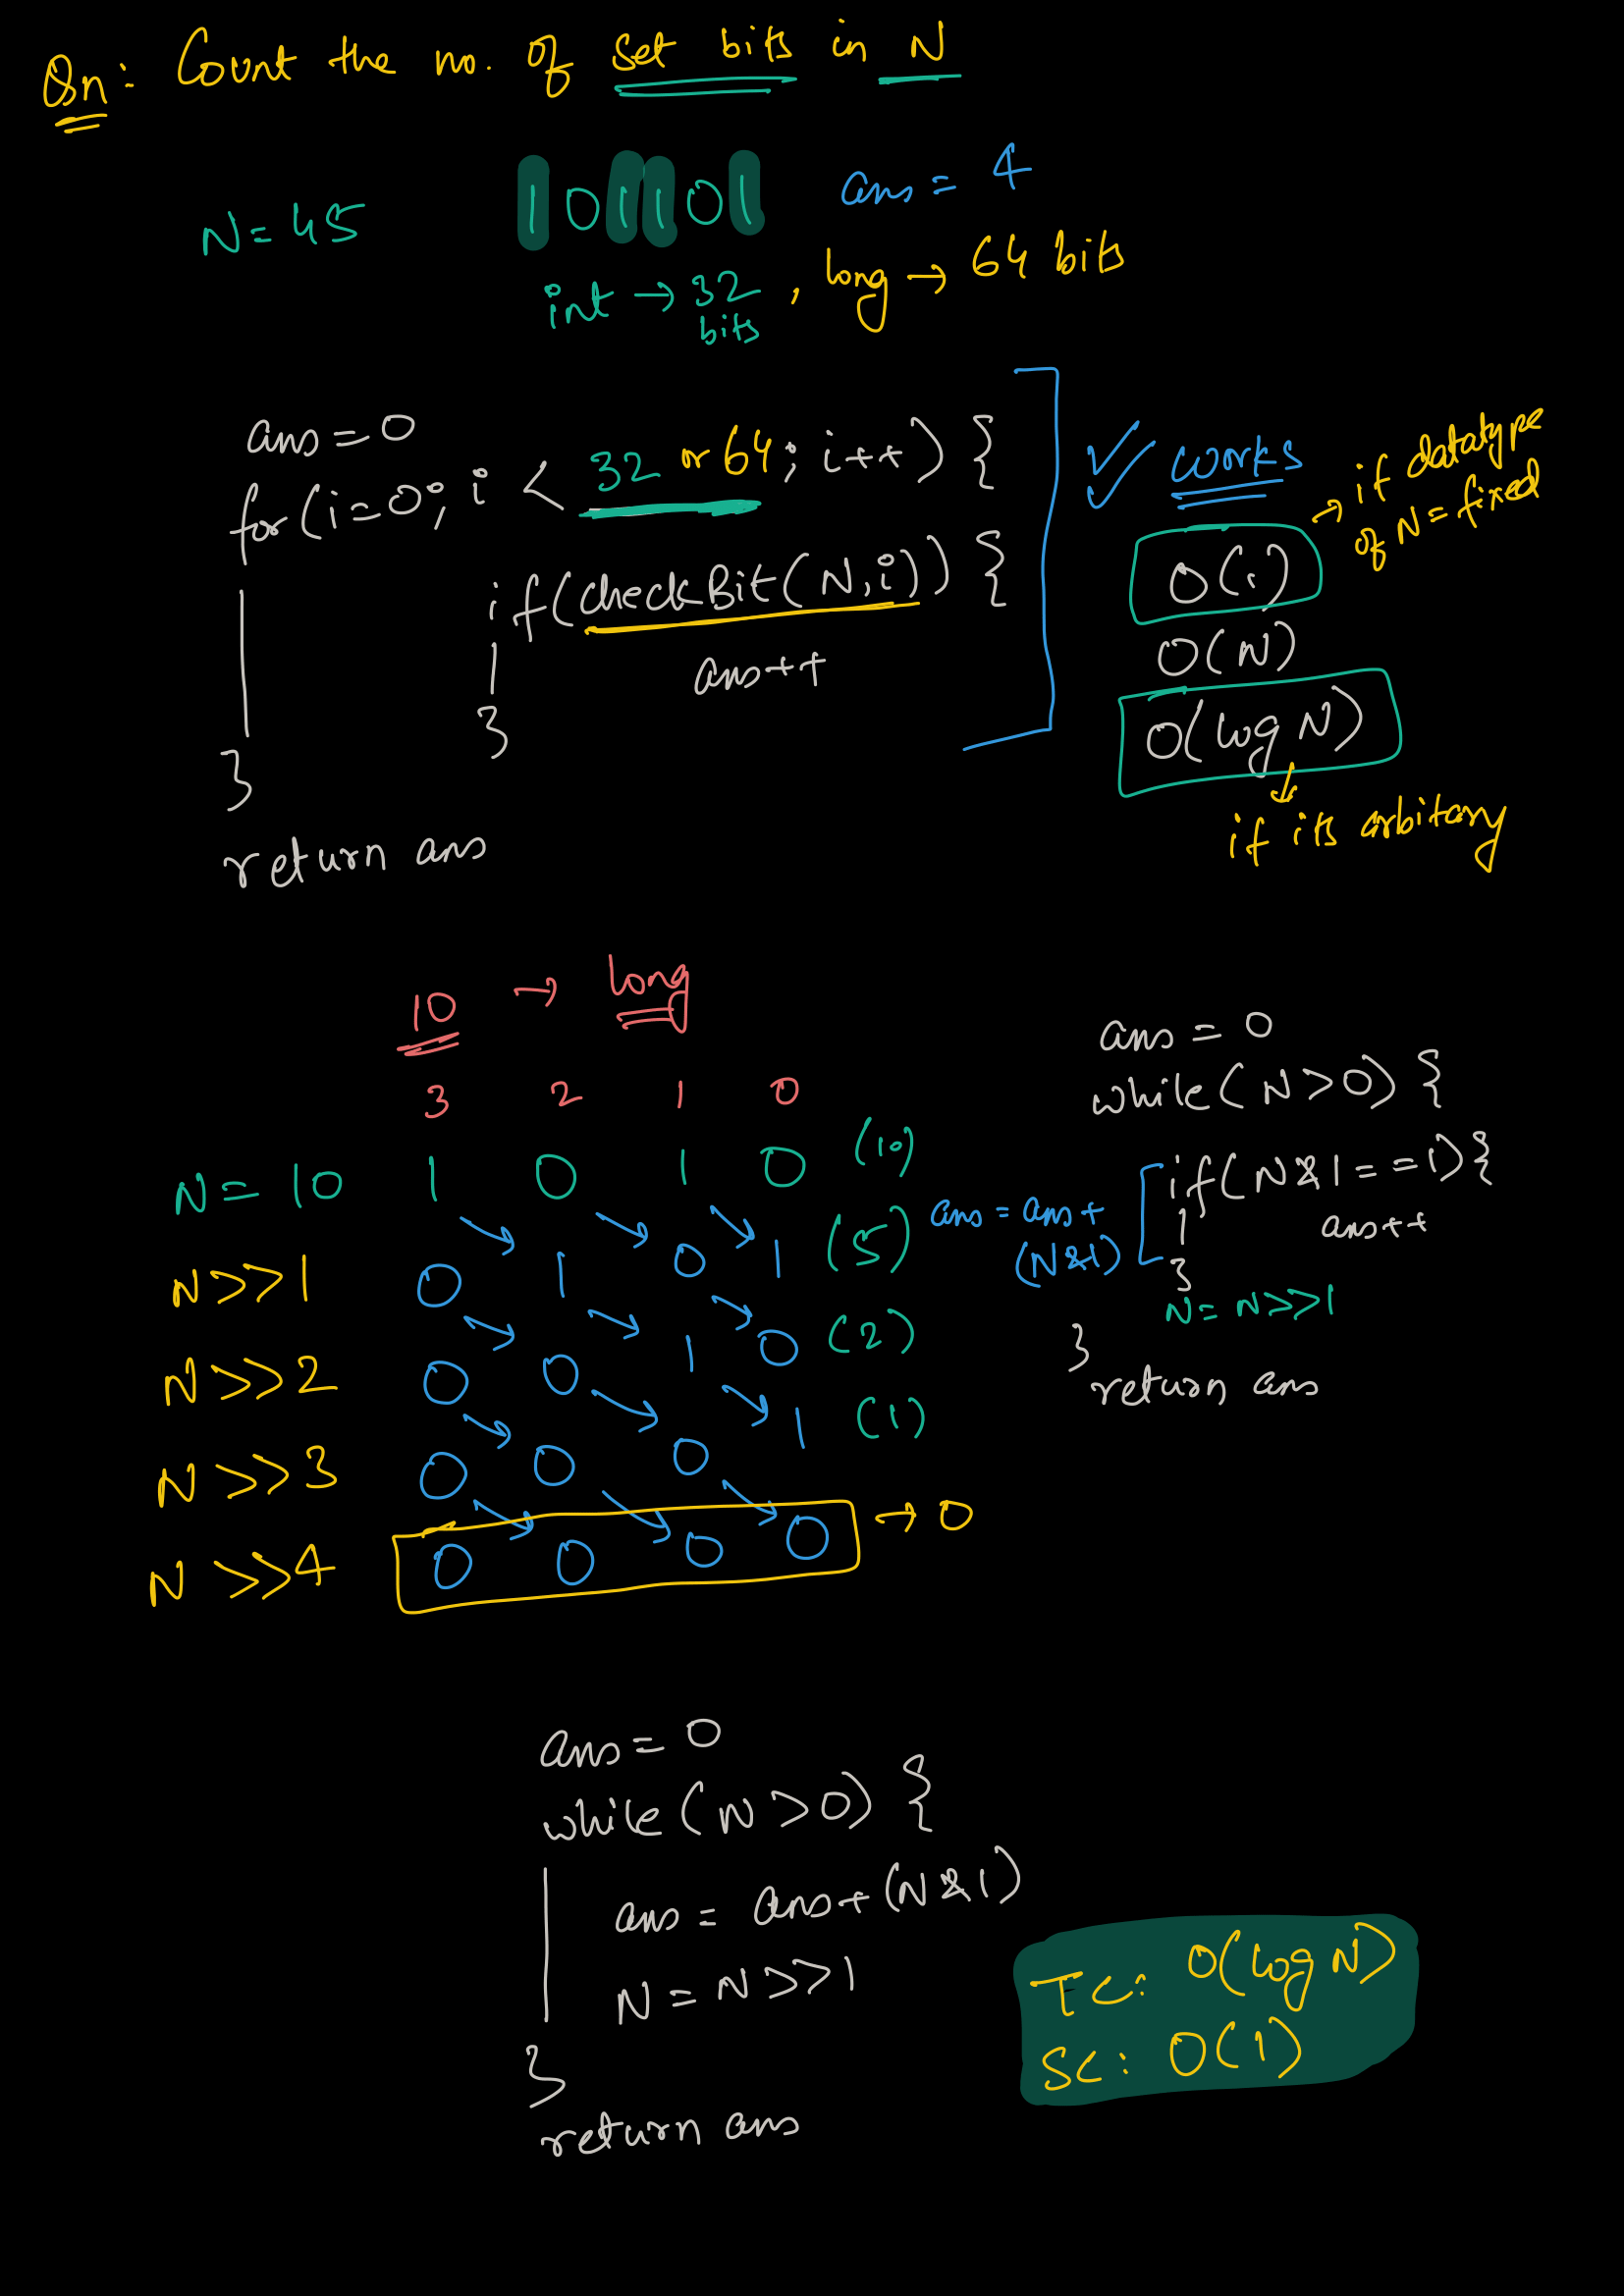 Qn: Count the no. of set bits in N
N = 45 101101 ans = 4
int → 32 bits, long → 64 bits
ans = 0
for(i=0; i < 32 or 64; i++) {
if(checkBit(N,i)) {
ans++
}
}
return ans
✓ works
O(1) → if datatype of N = fixed
O(N)
O(log N)
↓
if its arbitary
10 → long
3 2 1 0
N = 10 1 0 1 0 (10)
N>>1 0 1 0 1 (5)
N>>2 0 0 1 0 (2)
N>>3 0 0 0 1 (1)
N>>4 0 0 0 0 → 0
ans = 0
while(N>0) {
if(N&1==1){
ans++
}
ans = ans +
(N&1)
N = N>>1
}
return ans
ans = 0
while(N>0) {
ans = ans+(N&1)
N = N>>1
}
return ans
TC: O(log N)
SC: O(1)